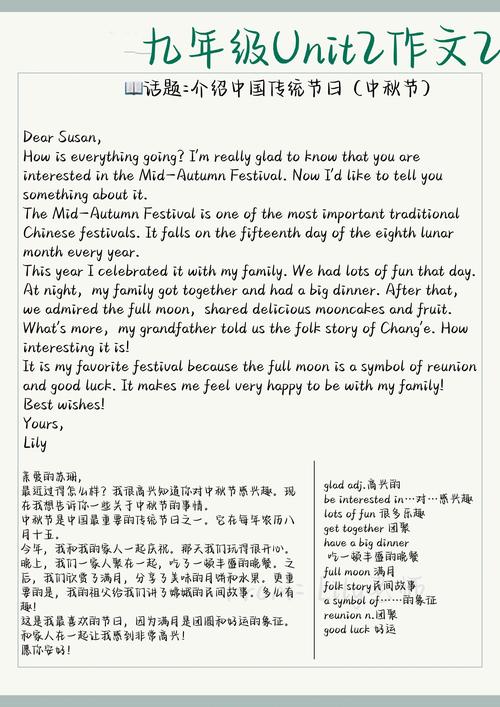 九年级Unit2作文2
📖话题:介绍中国传统节日（中秋节）
Dear Susan,
How is everything going? I'm really glad to know that you are
interested in the Mid-Autumn Festival. Now I'd like to tell you
something about it.
The Mid-Autumn Festival is one of the most important traditional
Chinese festivals. It falls on the fifteenth day of the eighth lunar
month every year.
This year I celebrated it with my family. We had lots of fun that day.
At night, my family got together and had a big dinner. After that,
we admired the full moon, shared delicious mooncakes and fruit.
What's more, my grandfather told us the folk story of Chang'e. How
interesting it is!
It is my favorite festival because the full moon is a symbol of reunion
and good luck. It makes me feel very happy to be with my family!
Best wishes!
Yours,
Lily
亲爱的苏珊,
最近过得怎么样? 我很高兴知道你对中秋节感兴趣。现
在我想告诉你一些关于中秋节的事情。
中秋节是中国最重要的传统节日之一。它在每年农历八
月十五。
今年, 我和我的家人一起庆祝。那天我们玩得很开心。
晚上, 我们一家人聚在一起, 吃了一顿丰盛的晚餐。之
后, 我们欣赏了满月, 分享了美味的月饼和水果。更重
要的是, 我的祖父给我们讲了嫦娥的民间故事。多么有
趣!
这是我最喜欢的节日, 因为满月是团圆和好运的象征。
和家人在一起让我感到非常高兴!
愿你安好!
glad adj.高兴的
be interested in…对…感兴趣
lots of fun 很多乐趣
get together 团聚
have a big dinner
吃一顿丰盛的晚餐
full moon 满月
folk story民间故事
a symbol of……的象征
reunion n.团聚
good luck 好运